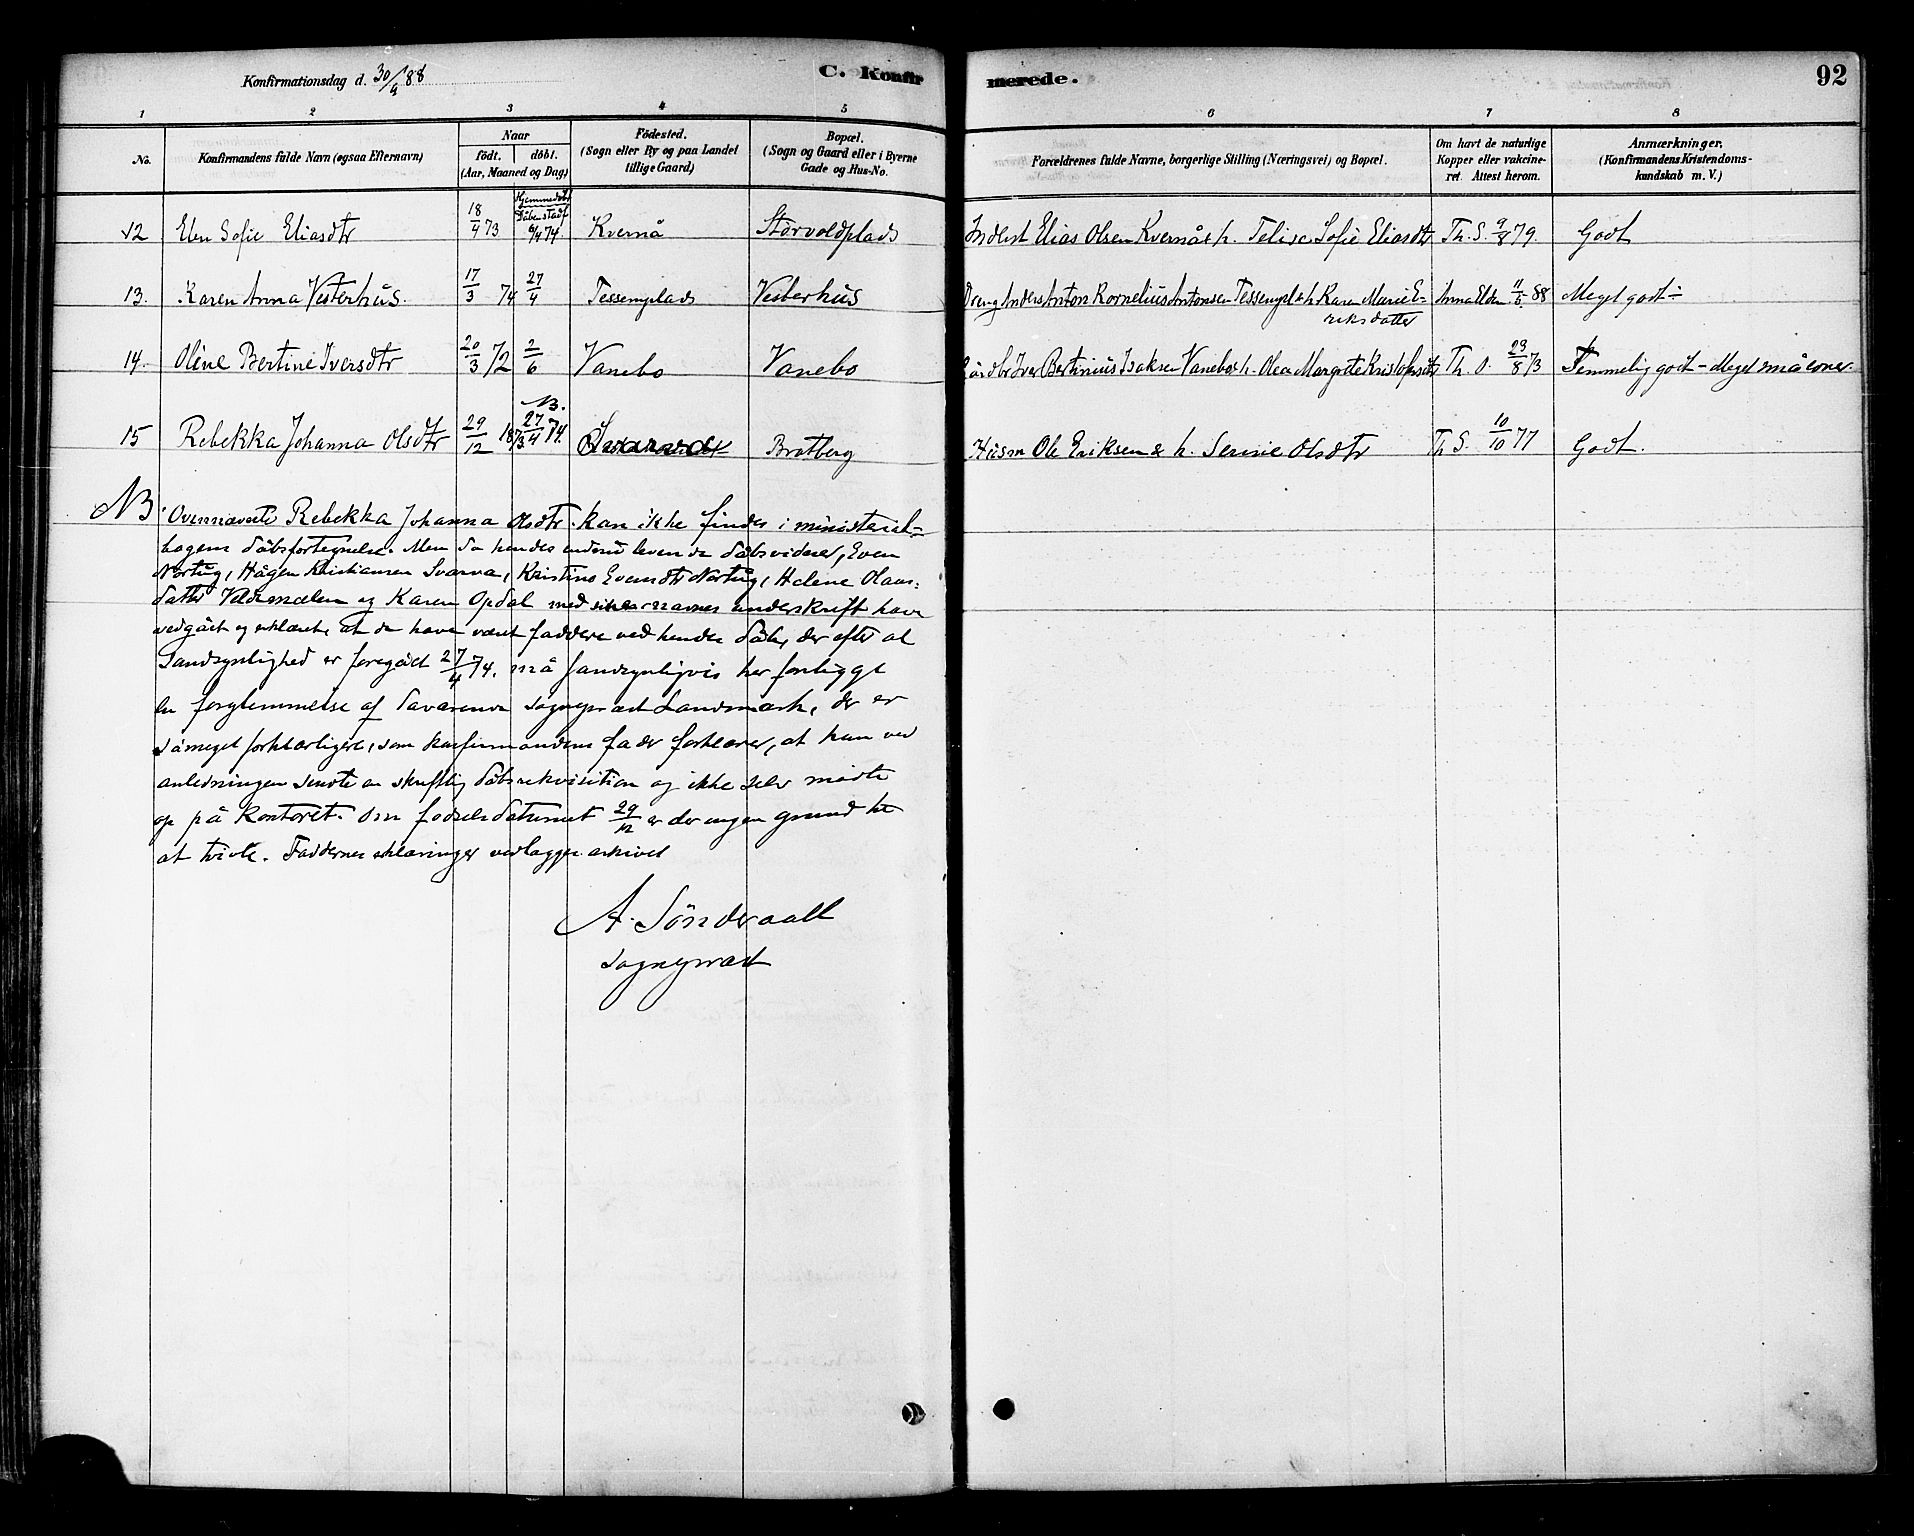 Konfirmationsdag d. 30/9 88
C. Konfirmerede.
92
1 2 3 4 5 6 7 8
No.
Konfirmandens fulde Navn (ogsaa Efternavn)
Naar
födt. döbt.
(Aar, Maaned og Dag)
Födested.
(Sogn eller By og paa Landet
tillige Gaard)
Bopæl.
(Sogn og Gaard eller i Byerne
Gade og Hus-No.
Forældrenes fulde Navne, borgerlige Stilling (Næringsvei) og Bopæl.
Om havt de naturlige
Kopper eller vakcine-
ret. Attest herom.
Anmærkninger.
(Konfirmandens Kristendoms-
kundskab m. V.)
12 Elen Sofie Eliasdtr 18/9 73 Hjemmedøbt Dåben stadf 6/4 74. Kvernå Storvoldplads Inderst Elias Olsen Kvernå & h. Sofie Eliasdtr Th. S. 9/8 79. Godt
13. Karen Anna Vesterhus. 17/3 74 27/4 Tessemplads Vesterhus Dreng Anders Anton Kornelius Antonsen Tessempl & h Karen Marie E-
riksdatter Anna Elden 11/5 88 Meget godt ÷
14. Oline Bertine Iversdtr 20/3 72 2/6 Vanebo Vanebo Gårdbr Iver Bertinius Isaksen Vanebo & h. Olea Margrete Kristofersdtr Th. O. 29/8 73 Temmelig godt - Meget små evner.
15 Rebekka Johanna Olsdtr 29/12 1873 NB. 27/4 74. Bratberg Husm Ole Eriksen & h. Serine Olsdtr Th S. 10/10 77 Godt.
NB. Ovennævnte Rebekka Johanna Olsdtr. kan ikke findes i ministerial-
bogens dåbsfortegnelse. Men da hendes endnu levende dåbsvidner, Even
Nortug, Hågen Kristiansen Svarva, Kristine Evensdtr Nortug, Helene Olaus-
datter Veldemælen og Karen Opdal med sine navnes underskrift have
vedgået og erklæret, at de have været faddere ved hendes dåb, der efter al
Sandsynlighed er foregået 27/4 74. må sandsynligvis her foreligge
en forglemmelse af daværende sogneprest Landmark, der er
såmeget forklarligere, som konfirmandens fader forklarer, at han ved
anledningen sendte en skriftlig dåbsrekvisition og ikke selv mødte
op på kontoret. Om fødselsdatumet 29/12 er der ingen grund til
at tvivle. Faddernes erklæringer vedlægges arkivet
A. Sönderaall
sogneprest